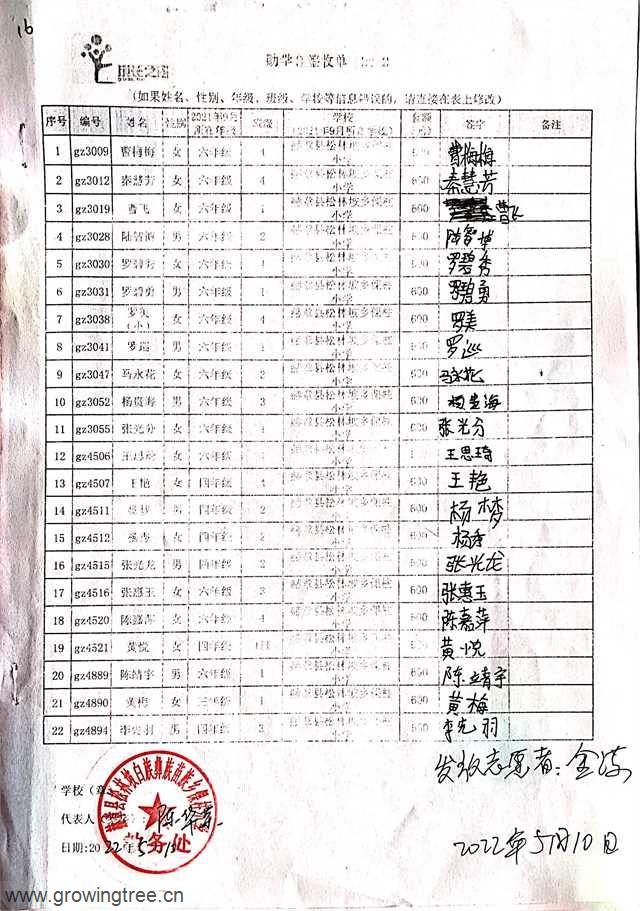 16
助学金签收单
(如果姓名、性别、年级、班级、学校等信息错误的，请直接在表上修改)
序号 编号 姓名 性别 2021年9月 班级 学校 金额 签字 备注
1 gz3009 曹梅梅 女 六年级 4 赫章县松林坡乡保 小学 600 曹梅梅
2 gz3012 秦慧芳 女 六年级 4 赫章县松林坡乡保 小学 600 秦慧芳
3 gz3019 曹飞 女 六年级 1 赫章县松林坡乡保 小学 600 曹飞
4 gz3028 陆智 男 六年级 2 赫章县松林坡乡保 小学 600 陆智
5 gz3030 罗碧秀 女 六年级 1 赫章县松林坡乡保 小学 600 罗碧秀
6 gz3031 罗碧勇 男 六年级 1 赫章县松林坡乡保 小学 600 罗碧勇
7 gz3038 罗美(小) 女 六年级 4 赫章县松林坡乡保 小学 600 罗美
8 gz3041 罗 男 六年级 1 赫章县松林坡乡保 小学 600 罗巡
9 gz3047 马永花 女 六年级 2 赫章县松林坡乡保 小学 600 马永花
10 gz3052 杨贵海 男 六年级 3 赫章县松林坡乡保 小学 600 杨 海
11 gz3055 张光分 女 六年级 赫章县松林坡乡保 小学 600 张光分
12 gz4506 王思琦 女 四年级 赫章县松林坡乡保 小学 600 王思琦
13 gz4507 王艳 女 四年级 4 赫章县松林坡乡保 小学 600 王艳
14 gz4511 杨梦 女 四年级 2 赫章县松林坡乡保 小学 600 杨梦
15 gz4512 杨秀 女 四年级 2 赫章县松林坡乡保 小学 600 杨秀
16 gz4515 张光龙 男 四年级 2 赫章县松林坡乡保 小学 600 张光龙
17 gz4516 张惠玉 女 六年级 3 赫章县松林坡乡保 小学 600 张惠玉
18 gz4520 陈嘉萍 女 六年级 4 赫章县松林坡乡保 小学 600 陈嘉萍
19 gz4521 黄悦 女 四年级 赫章县松林坡乡保 小学 600 黄悦
20 gz4889 陈靖宇 男 六年级 1 赫章县松林坡乡保 小学 600 陈靖宇
21 gz4890 黄梅 女 三年级 1 赫章县松林坡乡保 小学 600 黄梅
22 gz4894 李先羽 男 四年级 3 赫章县松林坡乡保 小学 600 李先羽
发放志愿者:金
学校（章
代表人 陈华
日期:2022年5
2022年5月10日
www.growingtree.cn